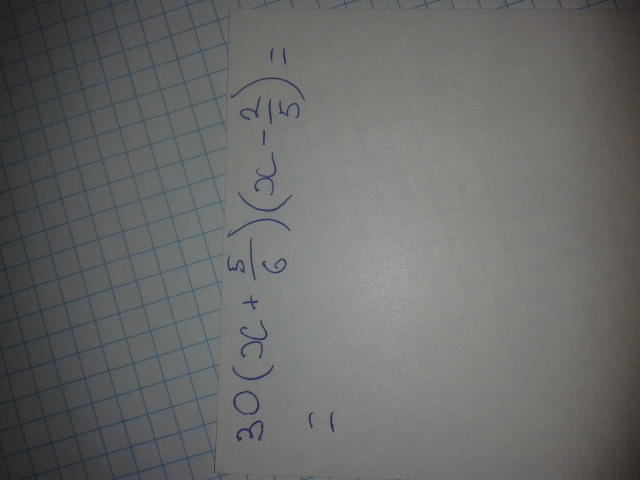 30(x + 5/6)(x - 2/5) =
=